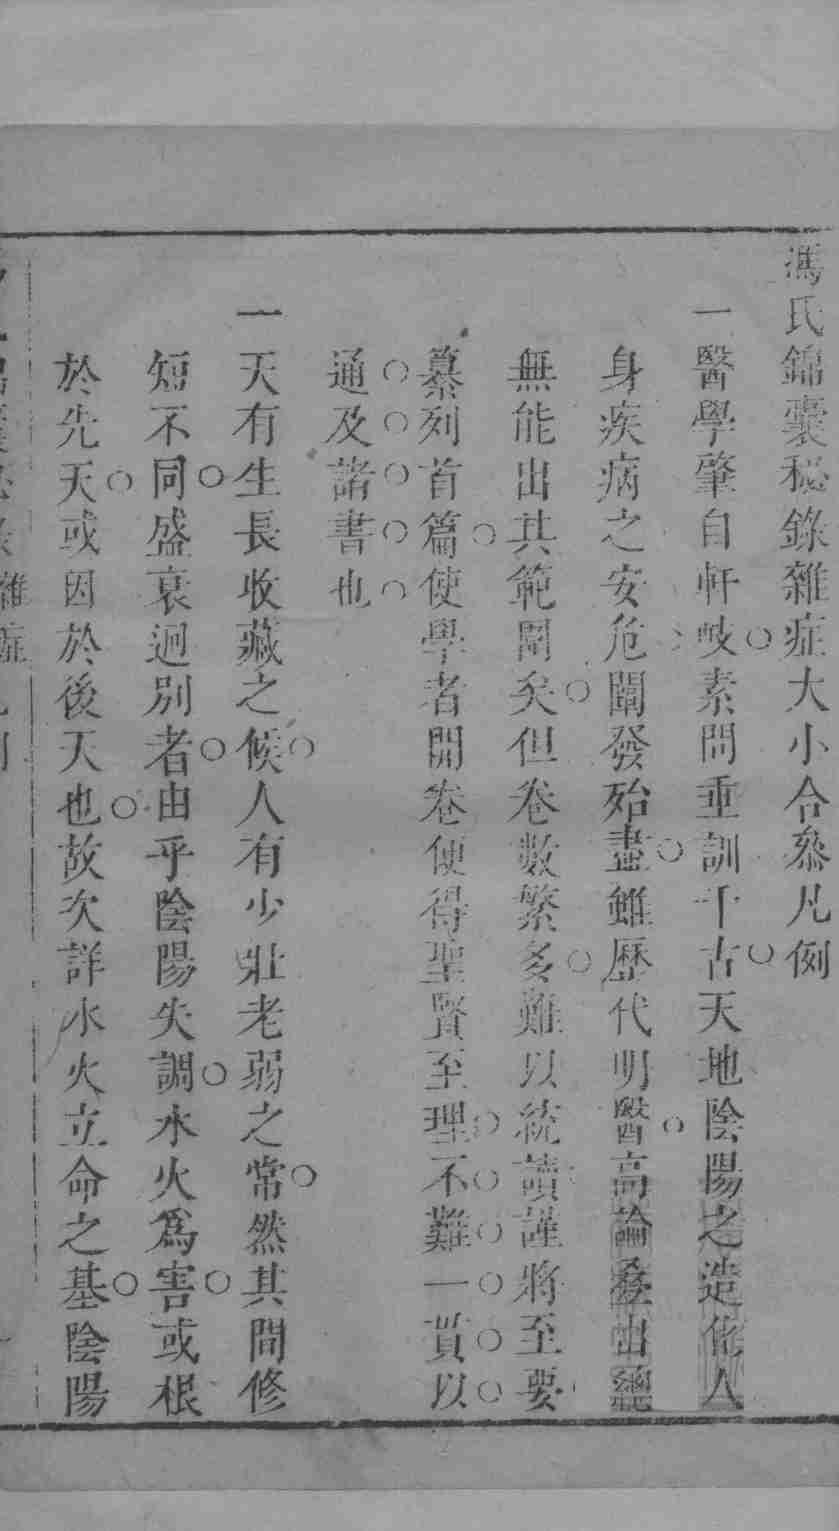 馮氏錦囊秘錄雜症大小合叅凡例
一醫學肇自軒岐素問垂訓千古天地陰陽之造化人
身疾病之安危闡發殆盡雖歷代明醫高論叠出總
無能出其範圍矣但卷數繁多難以統讀謹將至要
纂列首篇使學者開卷便得聖賢至理不難一貫以
通及諸書也
一天有生長收藏之候人有少壯老弱之常然其間修
短不同盛衰迥別者由乎陰陽失調水火爲害或根
於先天或因於後天也故次詳水火立命之基陰陽